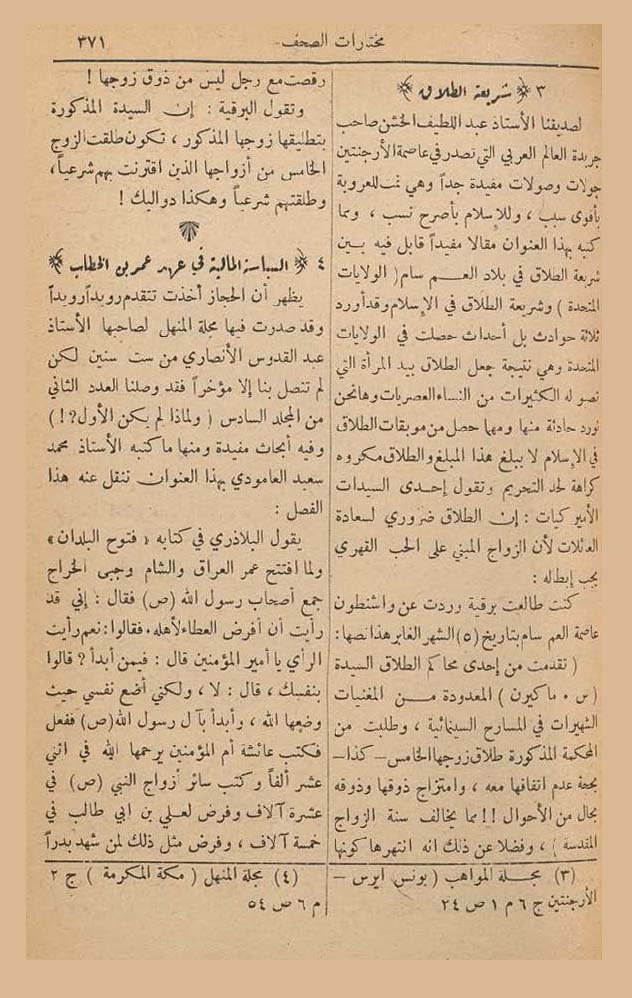 مختارات الصحف ٣٧١
٣ ﴿ شريعة الطلاق ﴾
لصديقنا الأستاذ عبد اللطيف الخشن صاحب
جريدة العالم العربي التي تصدر في عاصمة الأرجنتين
جولات وصولات مفيدة جداً وهي تمت للعروبة
بأقوى سبب ، وللإسلام بأصرح نسب ، ومما
كتبه بهذا العنوان مقالا مفيداً قابل فيه بين
شريعة الطلاق في بلاد العم سام ( الولايات
المتحدة ) وشريعة الطلاق في الإسلام وقد أورد
ثلاثة حوادث بل أحداث حصلت في الولايات
المتحدة وهي نتيجة جعل الطلاق بيد المرأة التي
تصبو له الكثيرات من النساء العصريات وها نحن
نورد حادثة منها ومهما حصل من موبقات الطلاق
في الإسلام لا يبلغ هذا المبلغ والطلاق مكروه
كراهة لحد التحريم وتقول إحدى السيدات
الأميركيات : إن الطلاق ضروري لسعادة
العائلات لأن الزواج المبني على الحب القهري
يجب إبطاله :
كنت طالعت برقية وردت عن واشنطون
عاصمة العم سام بتاريخ (٥) الشهر الغابر هذا نصها :
( تقدمت من إحدى محاكم الطلاق السيدة
( س . ماكيرن ) المعدودة من المغنيات
الشهيرات في المسارح السينمائية ، وطلبت من
المحكمة المذكورة طلاق زوجها الخامس – كذا –
بحجة عدم اتفاقها معه ، وامتزاج ذوقها وذوقه
بحال من الأحوال !! مما يخالف سنة الزواج
المقدسة ) ، وفضلا عن ذلك انه انتهرها كونها
(٣) مجلة المواهب ( بونس ايرس –
الأرجنتين ج ٦ م ١ ص ٢٤
رقصت مع رجل ليس من ذوق زوجها !
وتقول البرقية : إن السيدة المذكورة
بتطليقها زوجها المذكور ، تكون طلقت الزوج
الخامس من أزواجها الذين اقترنت بهم شرعياً ،
وطلقتهم شرعياً وهكذا دواليك !
٤ ﴿ السياسة المالية في عهد عمر بن الخطاب ﴾
يظهر أن الحجاز أخذت تتقدم رويداً رويداً
وقد صدرت فيها مجلة المنهل لصاحبها الأستاذ
عبد القدوس الأنصاري من ست سنين لكن
لم تتصل بنا إلا مؤخراً فقد وصلنا العدد الثاني
من المجلد السادس ( ولماذا لم يكن الأول ؟! )
وفيه أبحاث مفيدة ومنها ما كتبه الأستاذ محمد
سعيد العامودي بهذا العنوان ننقل عنه هذا
الفصل :
يقول البلاذري في كتابه « فتوح البلدان »
ولما افتتح عمر العراق والشام وجبى الخراج
جمع أصحاب رسول الله (ص) فقال : إني قد
رأيت أن أفرض العطاء لأهله . فقالوا : نعم رأيت
الرأي يا أمير المؤمنين قال : فيمن أبدأ ? قالوا
بنفسك ، قال : لا ، ولكني أضع نفسي حيث
وضعها الله ، وأبدأ بآل رسول الله (ص) ففعل
فكتب عائشة أم المؤمنين يرحمها الله في اثني
عشر ألفاً وكتب سائر أزواج النبي (ص) في
عشرة آلاف وفرض لعلي بن ابي طالب في
خمسة آلاف ، وفرض مثل ذلك لمن شهد بدراً
(٤) مجلة المنهل ( مكة المكرمة ) ج ٢
م ٦ ص ٥٤